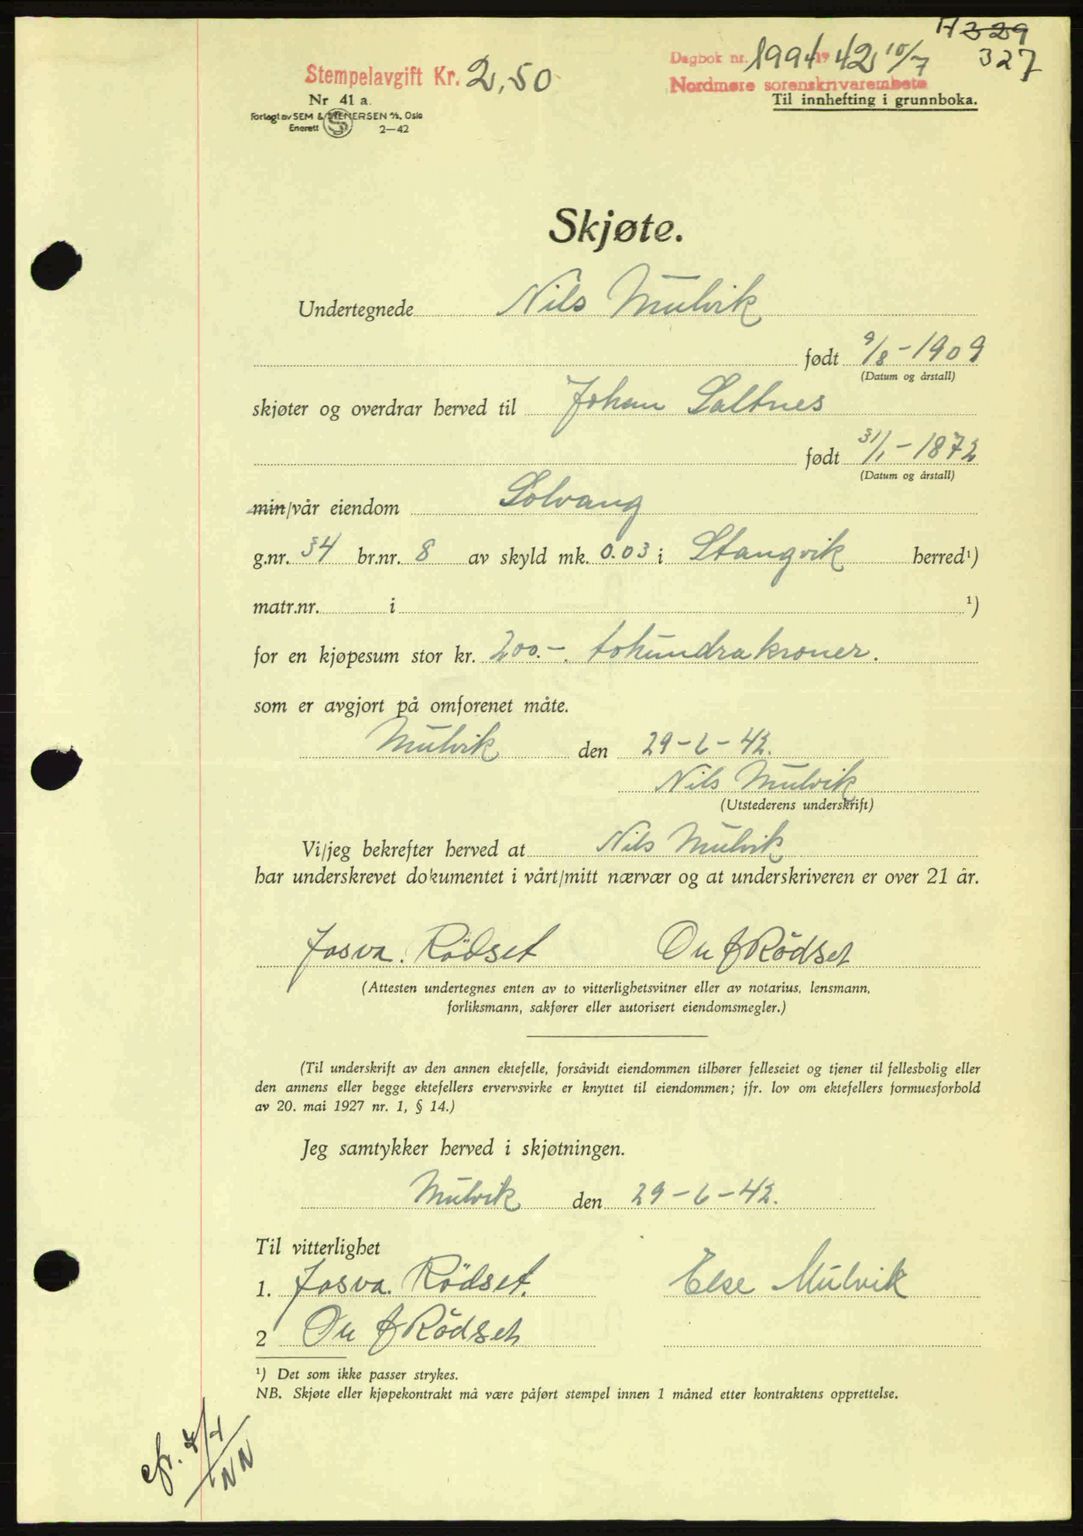 H 329
327
Stempelavgift Kr. 2,50
Dagbok nr. 1994 1942 10/7
Nordmøre sorenskrivarembete
Nr 41 a.
Til innhefting i grunnboka.
Forlagt av SEM & STENERSEN A/S, Oslo
Enerett S 2—42
Skjøte.
Undertegnede Nils Mulvik
født 9/8-1909
(Datum og årstall)
skjøter og overdrar herved til Johan Saltnes
født 31/1-1872
(Datum og årstall)
min/vår eiendom Solvang
g.nr. 34 br.nr. 8 av skyld mk. 0.03 i Stangvik herred¹)
matr.nr. i ¹)
for en kjøpesum stor kr. 200.-. tohundrakroner.
som er avgjort på omforenet måte.
Mulvik den 29-6-42.
Nils Mulvik
(Utstederens underskrift)
Vi/jeg bekrefter herved at Nils Mulvik
har underskrevet dokumentet i vårt/mitt nærvær og at underskriveren er over 21 år.
Josva. Rödset On J Rödset
(Attesten undertegnes enten av to vitterlighetsvitner eller av notarius, lensmann,
forliksmann, sakfører eller autorisert eiendomsmegler.)
(Til underskrift av den annen ektefelle, forsåvidt eiendommen tilhører felleseiet og tjener til fellesbolig eller
den annens eller begge ektefellers ervervsvirke er knyttet til eiendommen; jfr. lov om ektefellers formuesforhold
av 20. mai 1927 nr. 1, § 14.)
Jeg samtykker herved i skjøtningen.
Mulvik den 29-6-42.
Til vitterlighet
1. Josva. Rödset. Else Mulvik
2 On J Rödset
¹) Det som ikke passer strykes.
NB. Skjøte eller kjøpekontrakt må være påført stempel innen 1 måned etter kontraktens opprettelse.
NN